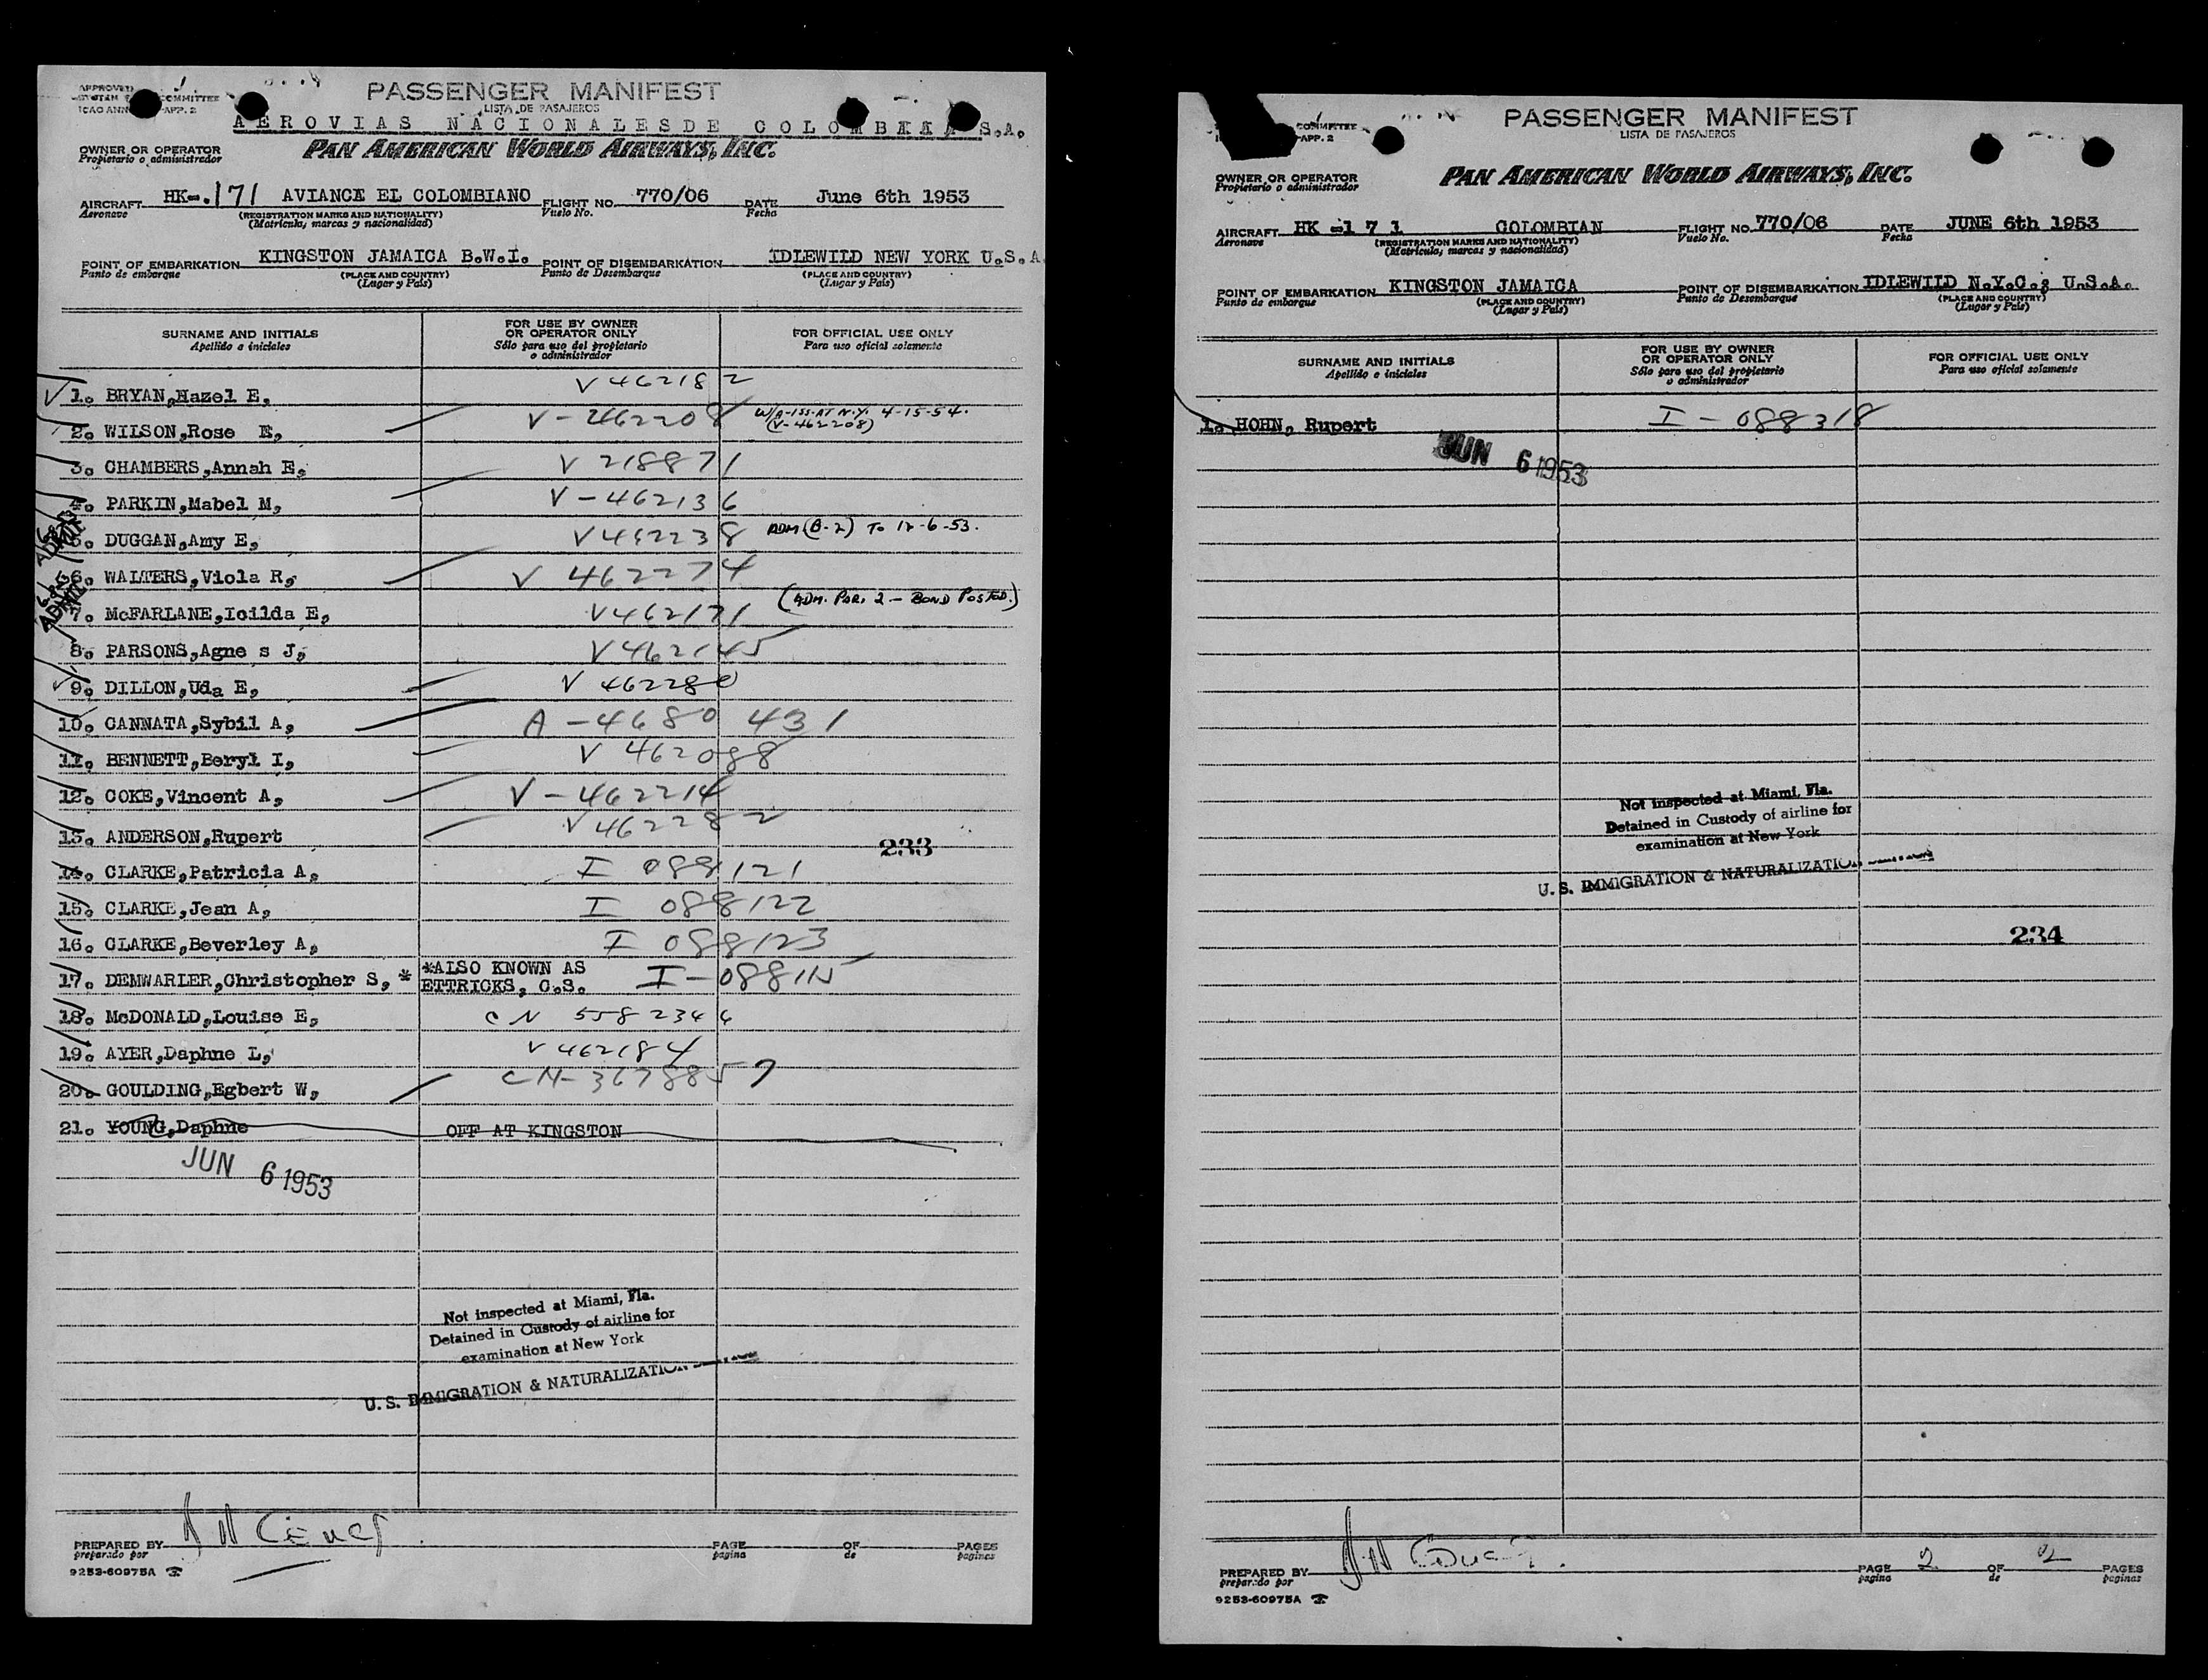 APPROVED
COMMITTEE
ICAO ANN APP. 2
PASSENGER MANIFEST
LISTA DE PASAJEROS
AEROVIAS NACIONALESDE COLOMBIA S.A.
OWNER OR OPERATOR
Propietario o administrador
PAN AMERICAN WORLD AIRWAYS, INC.
AIRCRAFT HK-.171 AVIANCA EL COLOMBIANO FLIGHT NO. 770/06 DATE June 6th 1953
Aeronave (REGISTRATION MARKS AND NATIONALITY) Vuelo No. Fecha
(Matricula, marcas y nacionalidad)
POINT OF EMBARKATION KINGSTON JAMAICA B.W.I. POINT OF DISEMBARKATION IDLEWILD NEW YORK U.S.A
Punto de embarque (PLACE AND COUNTRY) Punto de Desembarque (PLACE AND COUNTRY)
(Lugar y País) (Lugar y País)
SURNAME AND INITIALS FOR USE BY OWNER OR OPERATOR ONLY FOR OFFICIAL USE ONLY
Apellido e iniciales Sólo para uso del propietario o administrador Para uso oficial solamente
1. BRYAN,Hazel E, V 462182
2. WILSON,Rose E, V-462208 W/A-ISS-AT N.Y. 4-15-54.
(V-462208)
3. CHAMBERS,Annah E, V 218871
4. PARKIN,Mabel M, V-462136
5. DUGGAN,Amy E, V462238 ADM (B-2) TO 12-6-53.
6. WALTERS,Viola R, V 462274
7. McFARLANE,Icilda E, V462171 (ADM. PAR. 2 - BOND POSTED.)
8. PARSONS,Agne s J, V462145
9. DILLON,Uda E, V 462280
10. CANNATA,Sybil A, A-4680 431
11. BENNETT,Beryl I, V 462088
12. COKE,Vincent A, V-462214
13. ANDERSON,Rupert V462282
233
14. CLARKE,Patricia A, I 088121
15. CLARKE,Jean A, I 088122
16. CLARKE,Beverley A, I 088123
17. DEMWARLER,Christopher S, * *ALSO KNOWN AS ETTRICKS, C.S. I-088115
18. McDONALD,Louise E, CN 5582346
19. AYER,Daphne L, V462184
20. GOULDING,Egbert W, CN-3678857
21. YOUNG,Daphne OFF AT KINGSTON
JUN 6 1953
Not inspected at Miami, Fla.
Detained in Custody of airline for
examination at New York
U.S. IMMIGRATION & NATURALIZATION
PREPARED BY PAGE OF PAGES
preparado por pagina de paginas
9253-60975A
COMMITTEE
APP. 2
PASSENGER MANIFEST
LISTA DE PASAJEROS
OWNER OR OPERATOR
Propietario o administrador
PAN AMERICAN WORLD AIRWAYS, INC.
AIRCRAFT HK -1 7 1 COLOMBIAN FLIGHT NO. 770/06 DATE JUNE 6th 1953
Aeronave (REGISTRATION MARKS AND NATIONALITY) Vuelo No. Fecha
(Matricula, marcas y nacionalidad)
POINT OF EMBARKATION KINGSTON JAMAICA POINT OF DISEMBARKATION IDLEWILD N.Y.C.; U.S.A.
Punto de embarque (PLACE AND COUNTRY) Punto de Desembarque (PLACE AND COUNTRY)
(Lugar y País) (Lugar y País)
SURNAME AND INITIALS FOR USE BY OWNER OR OPERATOR ONLY FOR OFFICIAL USE ONLY
Apellido e iniciales Sólo para uso del propietario o administrador Para uso oficial solamente
1. HOHN, Rupert I-088318
JUN 6 1953
Not inspected at Miami, Fla.
Detained in Custody of airline for
examination at New York
U.S. IMMIGRATION & NATURALIZATION
234
PREPARED BY PAGE 2 OF 2 PAGES
preparado por pagina de paginas
9253-60975A